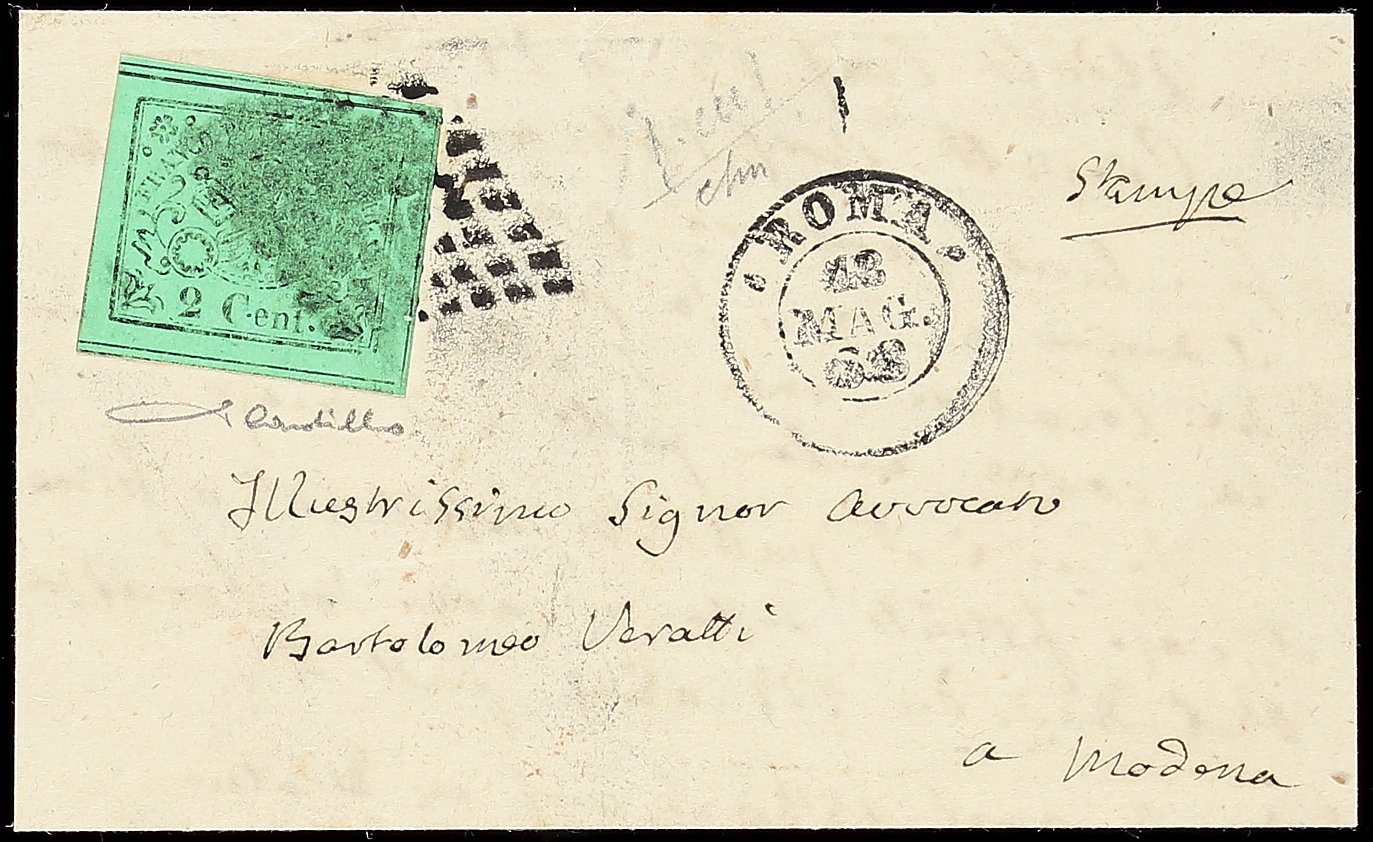 FRANCO
2 Cent.
ROMA
Stampe
MAG.
68
Illustrissimo Signor Avvocato
Bartolomeo Veratti
a Modena